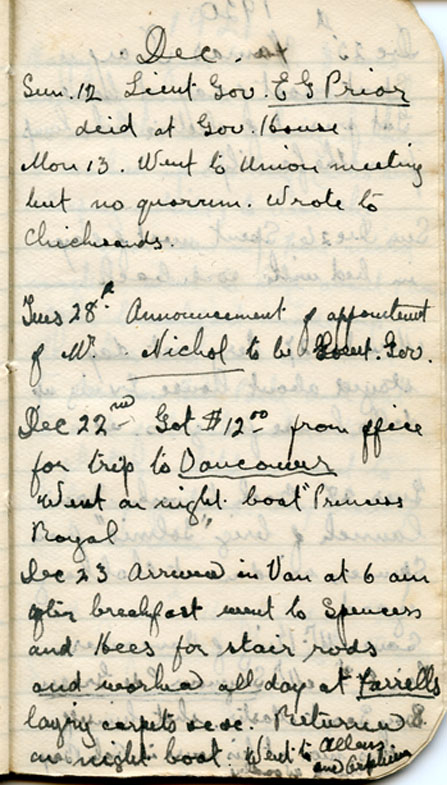 Dec.
Sun. 12 Lieut Gov. E G Prior
deid at Gov. House
Mon 13. Went to Union meeting
but no quorum. Wrote to
Chicksands.
Tues 28th. Announcement of appointment
of Mr. Nichol to be Lieut. Gov.
Dec 22nd Got $12.00 from office
for trip to Vancouver
"Went on night boat" Princess
Royal"
Dec 23 Arrived in Van at 6 am
after breakfast went to Spencers
and Hees for stair rods
and worked all day at Farrells
laying carpets &c &c. Returned
on night boat. Went to Allens
and Orpheum